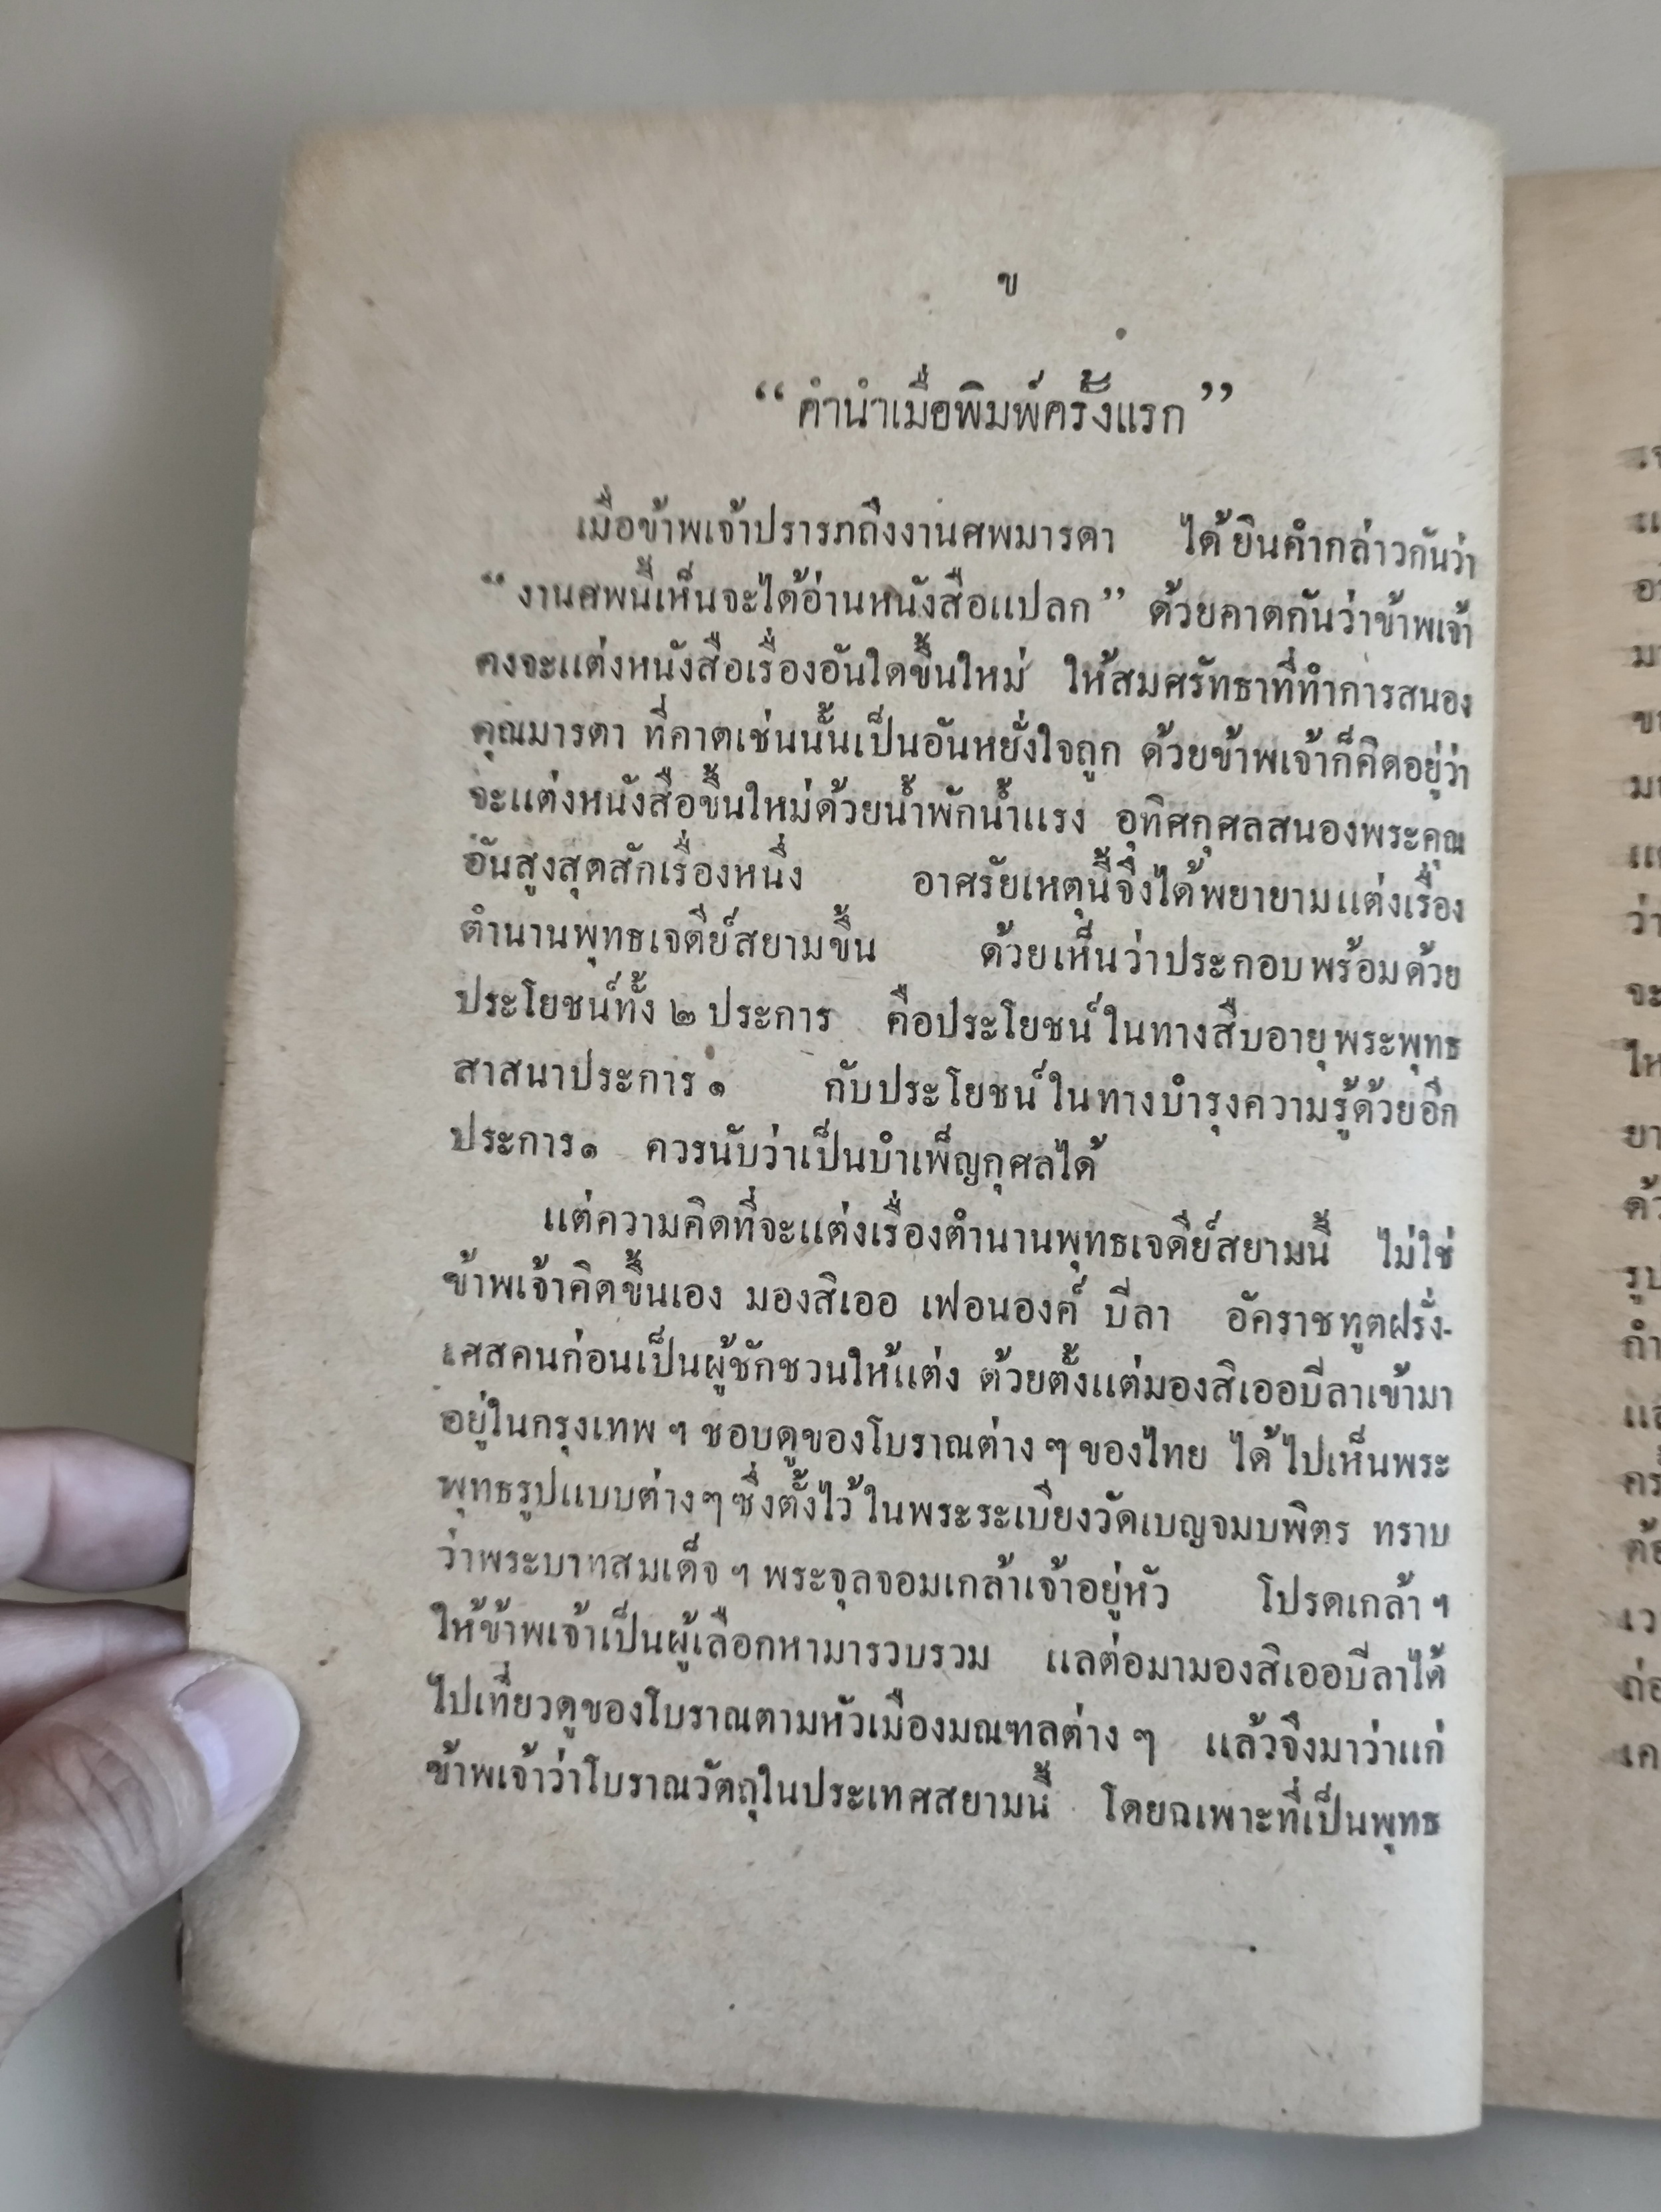 ข
“ คำนำเมื่อพิมพ์ครั้งแรก ”
เมื่อข้าพเจ้าปรารภถึงงานศพมารดา ได้ยินคำกล่าวกันว่า
“ งานศพนี้เห็นจะได้อ่านหนังสือแปลก ” ด้วยคาดกันว่าข้าพเจ้า
คงจะแต่งหนังสือเรื่องอันใดขึ้นใหม่ ให้สมศรัทธาที่ทำการสนอง
คุณมารดา ที่คาดเช่นนั้นเป็นอันหยั่งใจถูก ด้วยข้าพเจ้าก็คิดอยู่ว่า
จะแต่งหนังสือขึ้นใหม่ด้วยน้ำพักน้ำแรง อุทิศกุศลสนองพระคุณ
อันสูงสุดสักเรื่องหนึ่ง อาศรัยเหตุนี้จึงได้พยายามแต่งเรื่อง
ตำนานพุทธเจดีย์สยามขึ้น ด้วยเห็นว่าประกอบพร้อมด้วย
ประโยชน์ทั้ง ๒ ประการ คือประโยชน์ในทางสืบอายุพระพุทธ
สาสนาประการ ๑ กับประโยชน์ในทางบำรุงความรู้ด้วยอีก
ประการ ๑ ควรนับว่าเป็นบำเพ็ญกุศลได้
แต่ความคิดที่จะแต่งเรื่องตำนานพุทธเจดีย์สยามนี้ ไม่ใช่
ข้าพเจ้าคิดขึ้นเอง มองสิเออ เฟอนองค์ บีลา อัคราชทูตฝรั่ง-
เศสคนก่อนเป็นผู้ชักชวนให้แต่ง ด้วยตั้งแต่มองสิเออบีลาเข้ามา
อยู่ในกรุงเทพ ฯ ชอบดูของโบราณต่าง ๆ ของไทย ได้ไปเห็นพระ
พุทธรูปแบบต่าง ๆ ซึ่งตั้งไว้ในพระระเบียงวัดเบญจมบพิตร ทราบ
ว่าพระบาทสมเด็จ ฯ พระจุลจอมเกล้าเจ้าอยู่หัว โปรดเกล้า ฯ
ให้ข้าพเจ้าเป็นผู้เลือกหามารวบรวม แลต่อมามองสิเออบีลาได้
ไปเที่ยวดูของโบราณตามหัวเมืองมณฑลต่าง ๆ แล้วจึงมาว่าแก่
ข้าพเจ้าว่าโบราณวัตถุในประเทศสยามนี้ โดยฉเพาะที่เป็นพุทธ